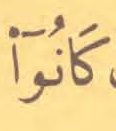 كَانُوٓا۟